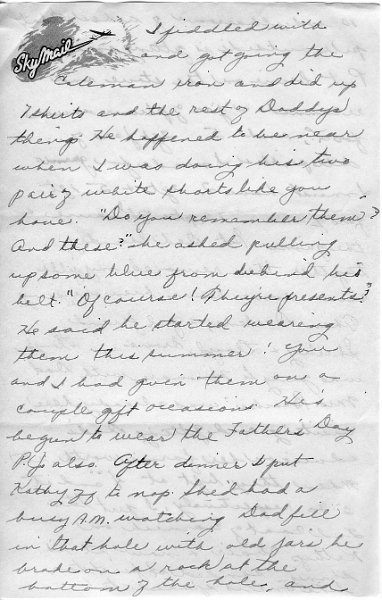 Sky Mail
I fiddled with
and got going the
Coleman iron and did up
7 shirts and the rest of Daddy's
things. He happened to be near
when I was doing his two
pair of white shorts like you
have. "Do you remember them"?
And these?" he asked pulling
up some blue from behind his
belt. "Of course! They're presents."
He said he started wearing
them this summer! You
and I had given them on a
couple gift occasions. He's
begun to wear the Fathers Day
P.J.s also. After dinner I put
Kathy to nap. She'd had a
busy A.M. watching Dad fill
in that hole with old jars he
broke on a rock at the
bottom of the hole, and